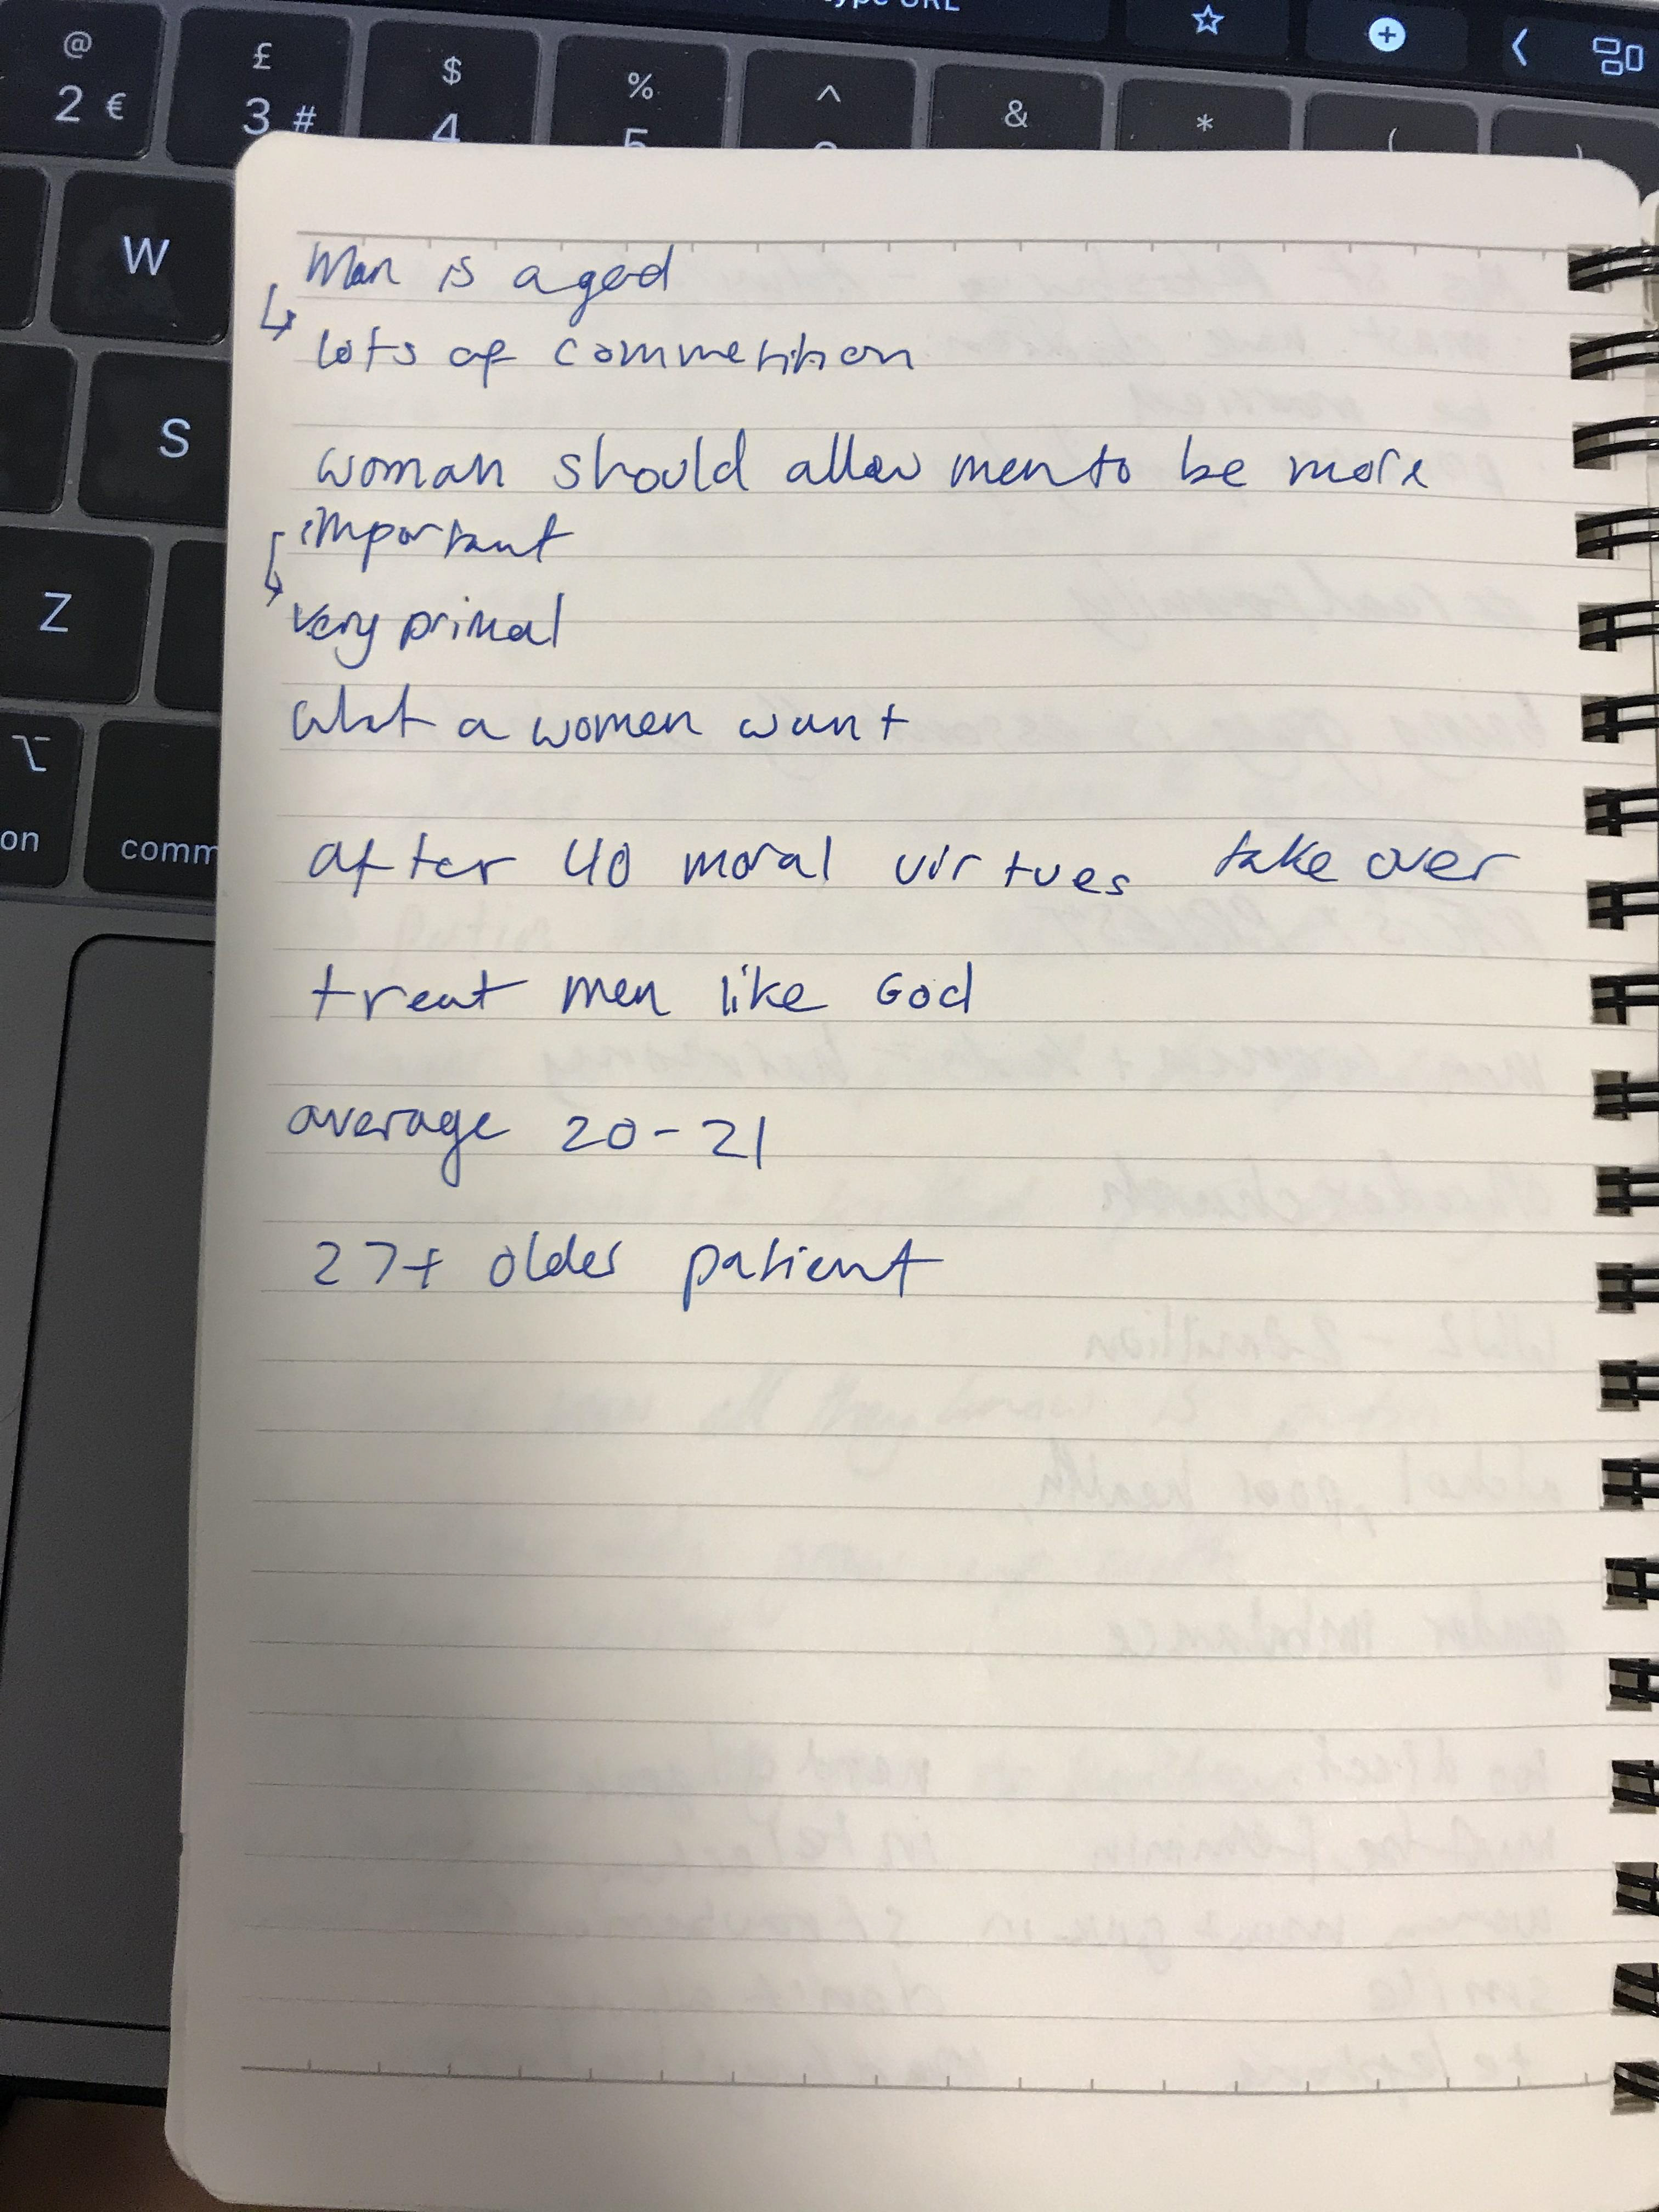 type URL
@ £ $ % ^ & * ( )
2 € 3 # 4 5
W
S
Z
on comm
Man is a god
↳ lots of commetition
woman should allow men to be more
important
↳ very primal
what a women want
after 40 moral virtues take over
treat men like God
average 20-21
27+ older patient